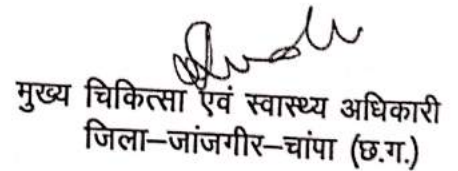 मुख्य चिकित्सा एवं स्वास्थ्य अधिकारी
जिला–जांजगीर–चांपा (छ.ग.)